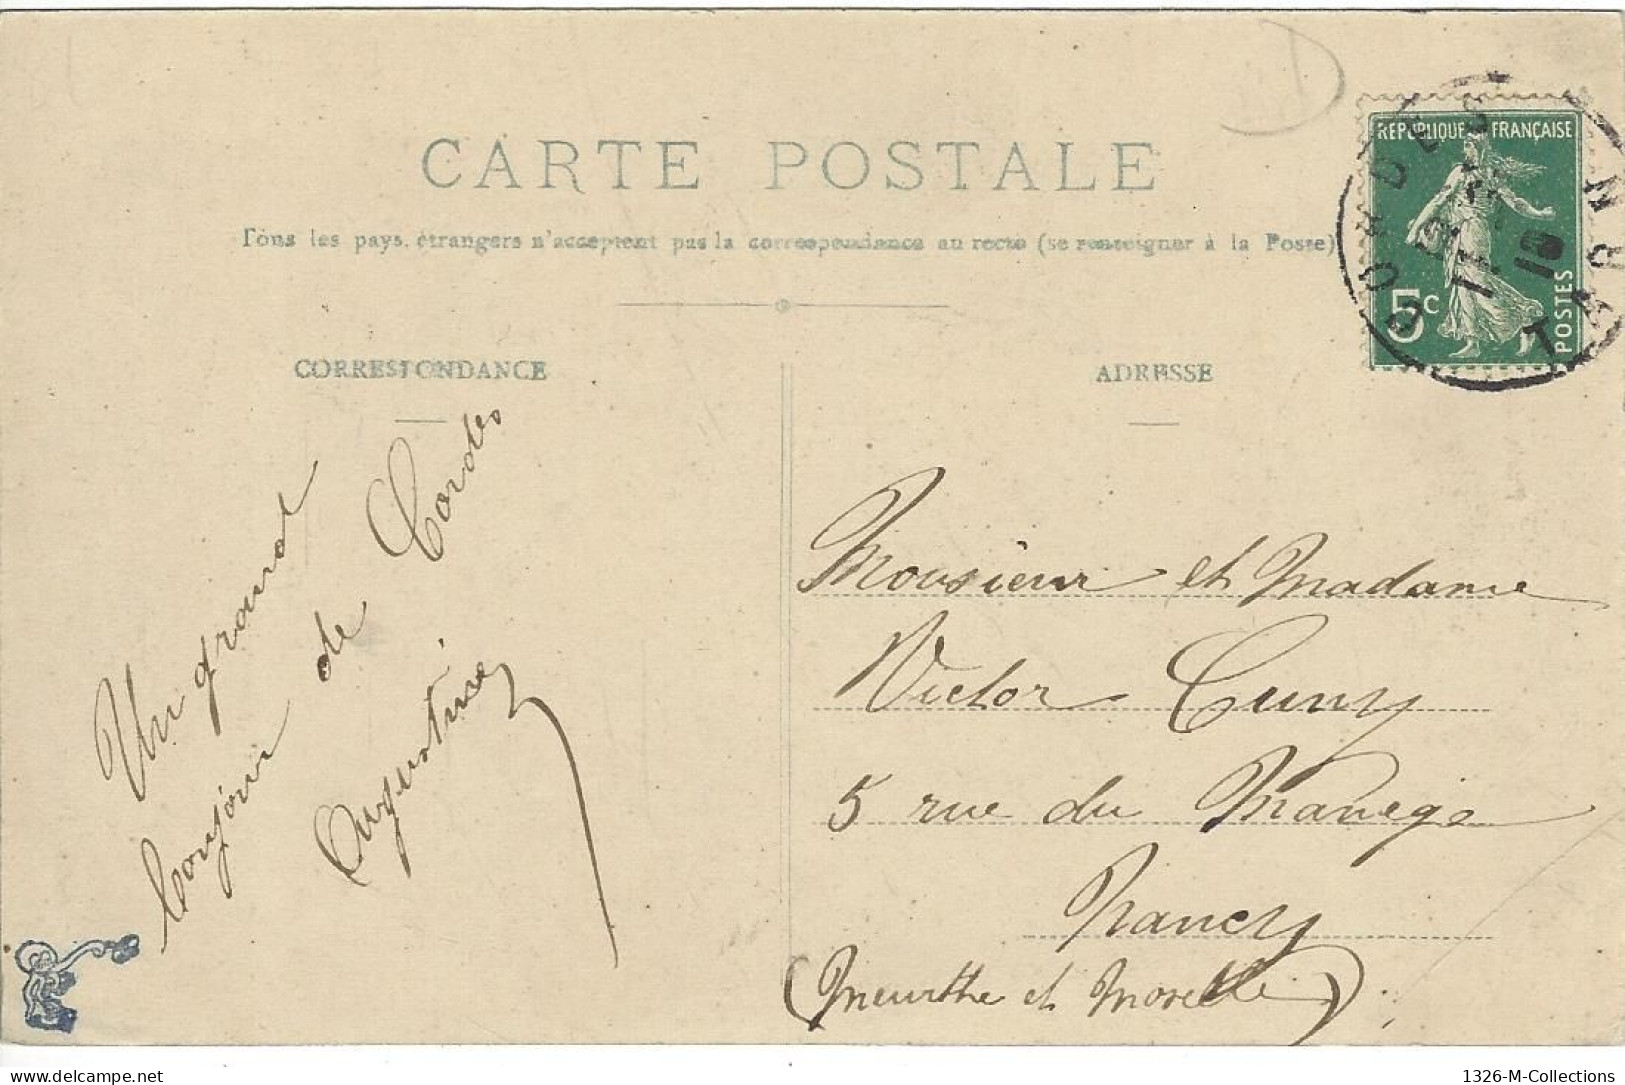 CARTE POSTALE
Tous les pays étrangers n'acceptent pas la correspondance au recto (se renseigner à la Poste)
CORRESPONDANCE
ADRESSE
REPUBLIQUE FRANÇAISE
5c
POSTES
CORDES
TARN
11
10
Un grand
bonjour de Cordes
Augustine
Monsieur et Madame
Victor Cuny
5 rue du Manege
Nancy
(Meurthe et Moselle)
delcampe.net
1326-M-Collections